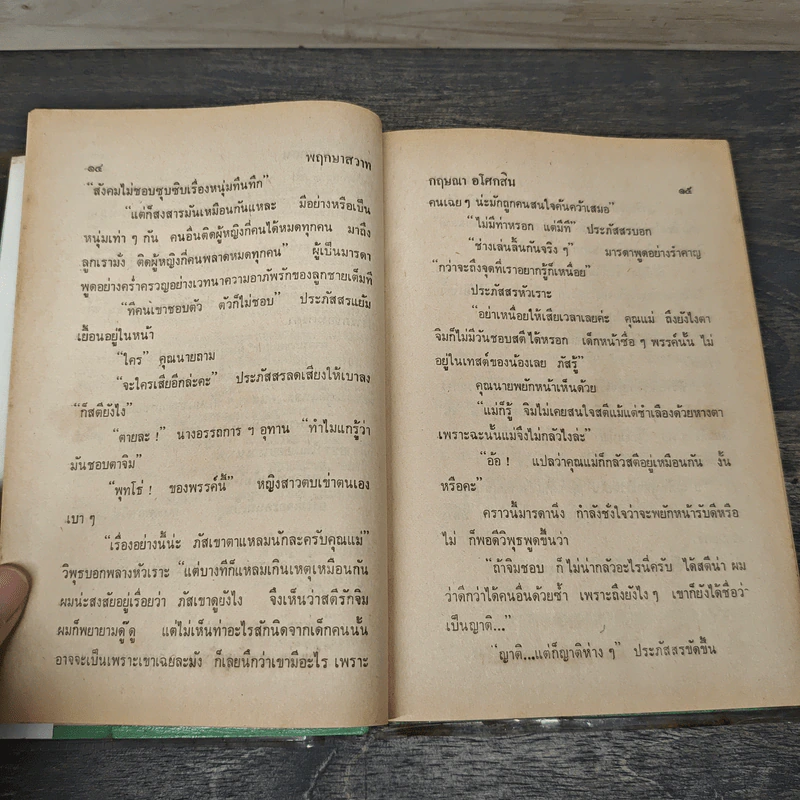 ๑๔
พฤกษาสวาท
“สังคมไม่ชอบซุบซิบเรื่องหนุ่มทึนทึก”
“แต่ก็สงสารมันเหมือนกันแหละ มีอย่างหรือเป็น
หนุ่มเท่า ๆ กัน คนอื่นติดผู้หญิงกี่คนได้หมดทุกคน มาถึง
ลูกเรามั่ง ติดผู้หญิงกี่คนพลาดหมดทุกคน” ผู้เป็นมารดา
พูดอย่างคร่ำครวญอย่างเวทนาความอาภัพรักของลูกชายเต็มที่
“ทีคนเขาชอบตัว ตัวก็ไม่ชอบ” ประภัสสรแย้ม
เยื้อนอยู่ในหน้า
“ใคร” คุณนายถาม
“จะใครเสียอีกล่ะคะ” ประภัสสรลดเสียงให้เบาลง
“ก็สตียังไง”
“ตายละ !” นางอรรถการ ๆ อุทาน “ทำไมแกรู้ว่า
มันชอบตาจิม”
“พุทโธ่ ! ของพรรค์นี้” หญิงสาวตบเข่าตนเอง
เบา ๆ
“เรื่องอย่างนี้น่ะ ภัสเขาตาแหลมนักละครับคุณแม่”
วิพุธบอกพลางหัวเราะ “แต่บางทีก็แหลมเกินเหตุเหมือนกัน
ผมน่ะสงสัยอยู่เรื่อยว่า ภัสเขาดูยังไง จึงเห็นว่าสตีรักจิม
ผมก็พยายามดู๊ดู แต่ไม่เห็นท่าอะไรสักนิดจากเด็กคนนั้น
อาจจะเป็นเพราะเขาเฉยละมัง ก็เลยนึกว่าเขามีอะไร เพราะ
กฤษณา อโศกสิน
๑๕
คนเฉย ๆ น่ะมักถูกคนสนใจค้นคว้าเสมอ”
“ไม่มีท่าหรอก แต่มีที” ประภัสสรบอก
“ช่างเล่นลิ้นกันจริง ๆ” มารดาพูดอย่างรำคาญ
“กว่าจะถึงจุดที่เราอยากรู้ก็เหนื่อย”
ประภัสสรหัวเราะ
“อย่าเหนื่อยให้เสียเวลาเลยค่ะ คุณแม่ ถึงยังไงตา
จิมก็ไม่มีวันชอบสตีได้หรอก เด็กหน้าซื่อ ๆ พรรค์นั้น ไม่
อยู่ในเทสต์ของน้องเลย ภัสรู้”
คุณนายพยักหน้าเห็นด้วย
“แม่ก็รู้ จิมไม่เคยสนใจสตีแม้แต่ชำเลืองด้วยหางตา
เพราะฉะนั้นแม่จึงไม่กลัวไงล่ะ”
“อ้อ ! แปลว่าคุณแม่ก็กลัวสตีอยู่เหมือนกัน งั้น
หรือคะ”
คราวนี้มารดานิ่ง กำลังชั่งใจว่าจะพยักหน้ารับดีหรือ
ไม่ ก็พอดีวิพุธพูดขึ้นว่า
“ถ้าจิมชอบ ก็ไม่น่ากลัวอะไรนี่ครับ ได้สตีน่า ผม
ว่าดีกว่าได้คนอื่นด้วยซ้ำ เพราะถึงยังไง ๆ เขาก็ยังได้ชื่อว่า
เป็นญาติ...”
“ญาติ...แต่ก็ญาติห่าง ๆ” ประภัสสรขัดขึ้น